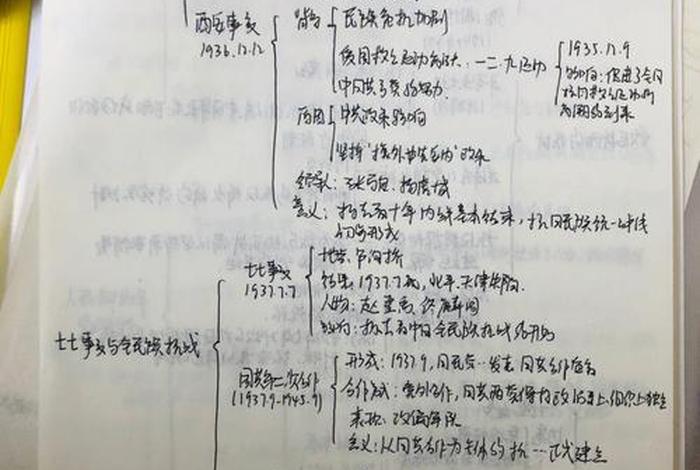 西安事变
1936.12.12
背景
民族危机加剧
抗日救亡运动高涨：一二·九运动
1935.12.9
影响：促进了全国
抗日救亡运动
高潮的到来
中国共产党的努力
原因
中共政策影响
坚持"攘外必先安内"政策
领导：张学良、杨虎城
意义：标志着十年内战基本结束，抗日民族统一战线
初步形成
七七事变与全民族抗战
七七事变
1937.7.7
地点：卢沟桥
结果：1937.7底，北平、天津失陷
人物：赵登禹、佟麟阁
标志着中国全民族抗战的开始
国共第二次合作
(1937.9-1945.9)
形式：1937.9，国民党…发表 国共合作宣言
合作方式：党外合作，国共两党保持政治上、组织上独立
表现：改编军队
意义：以国共合作为主体的抗…正式建立